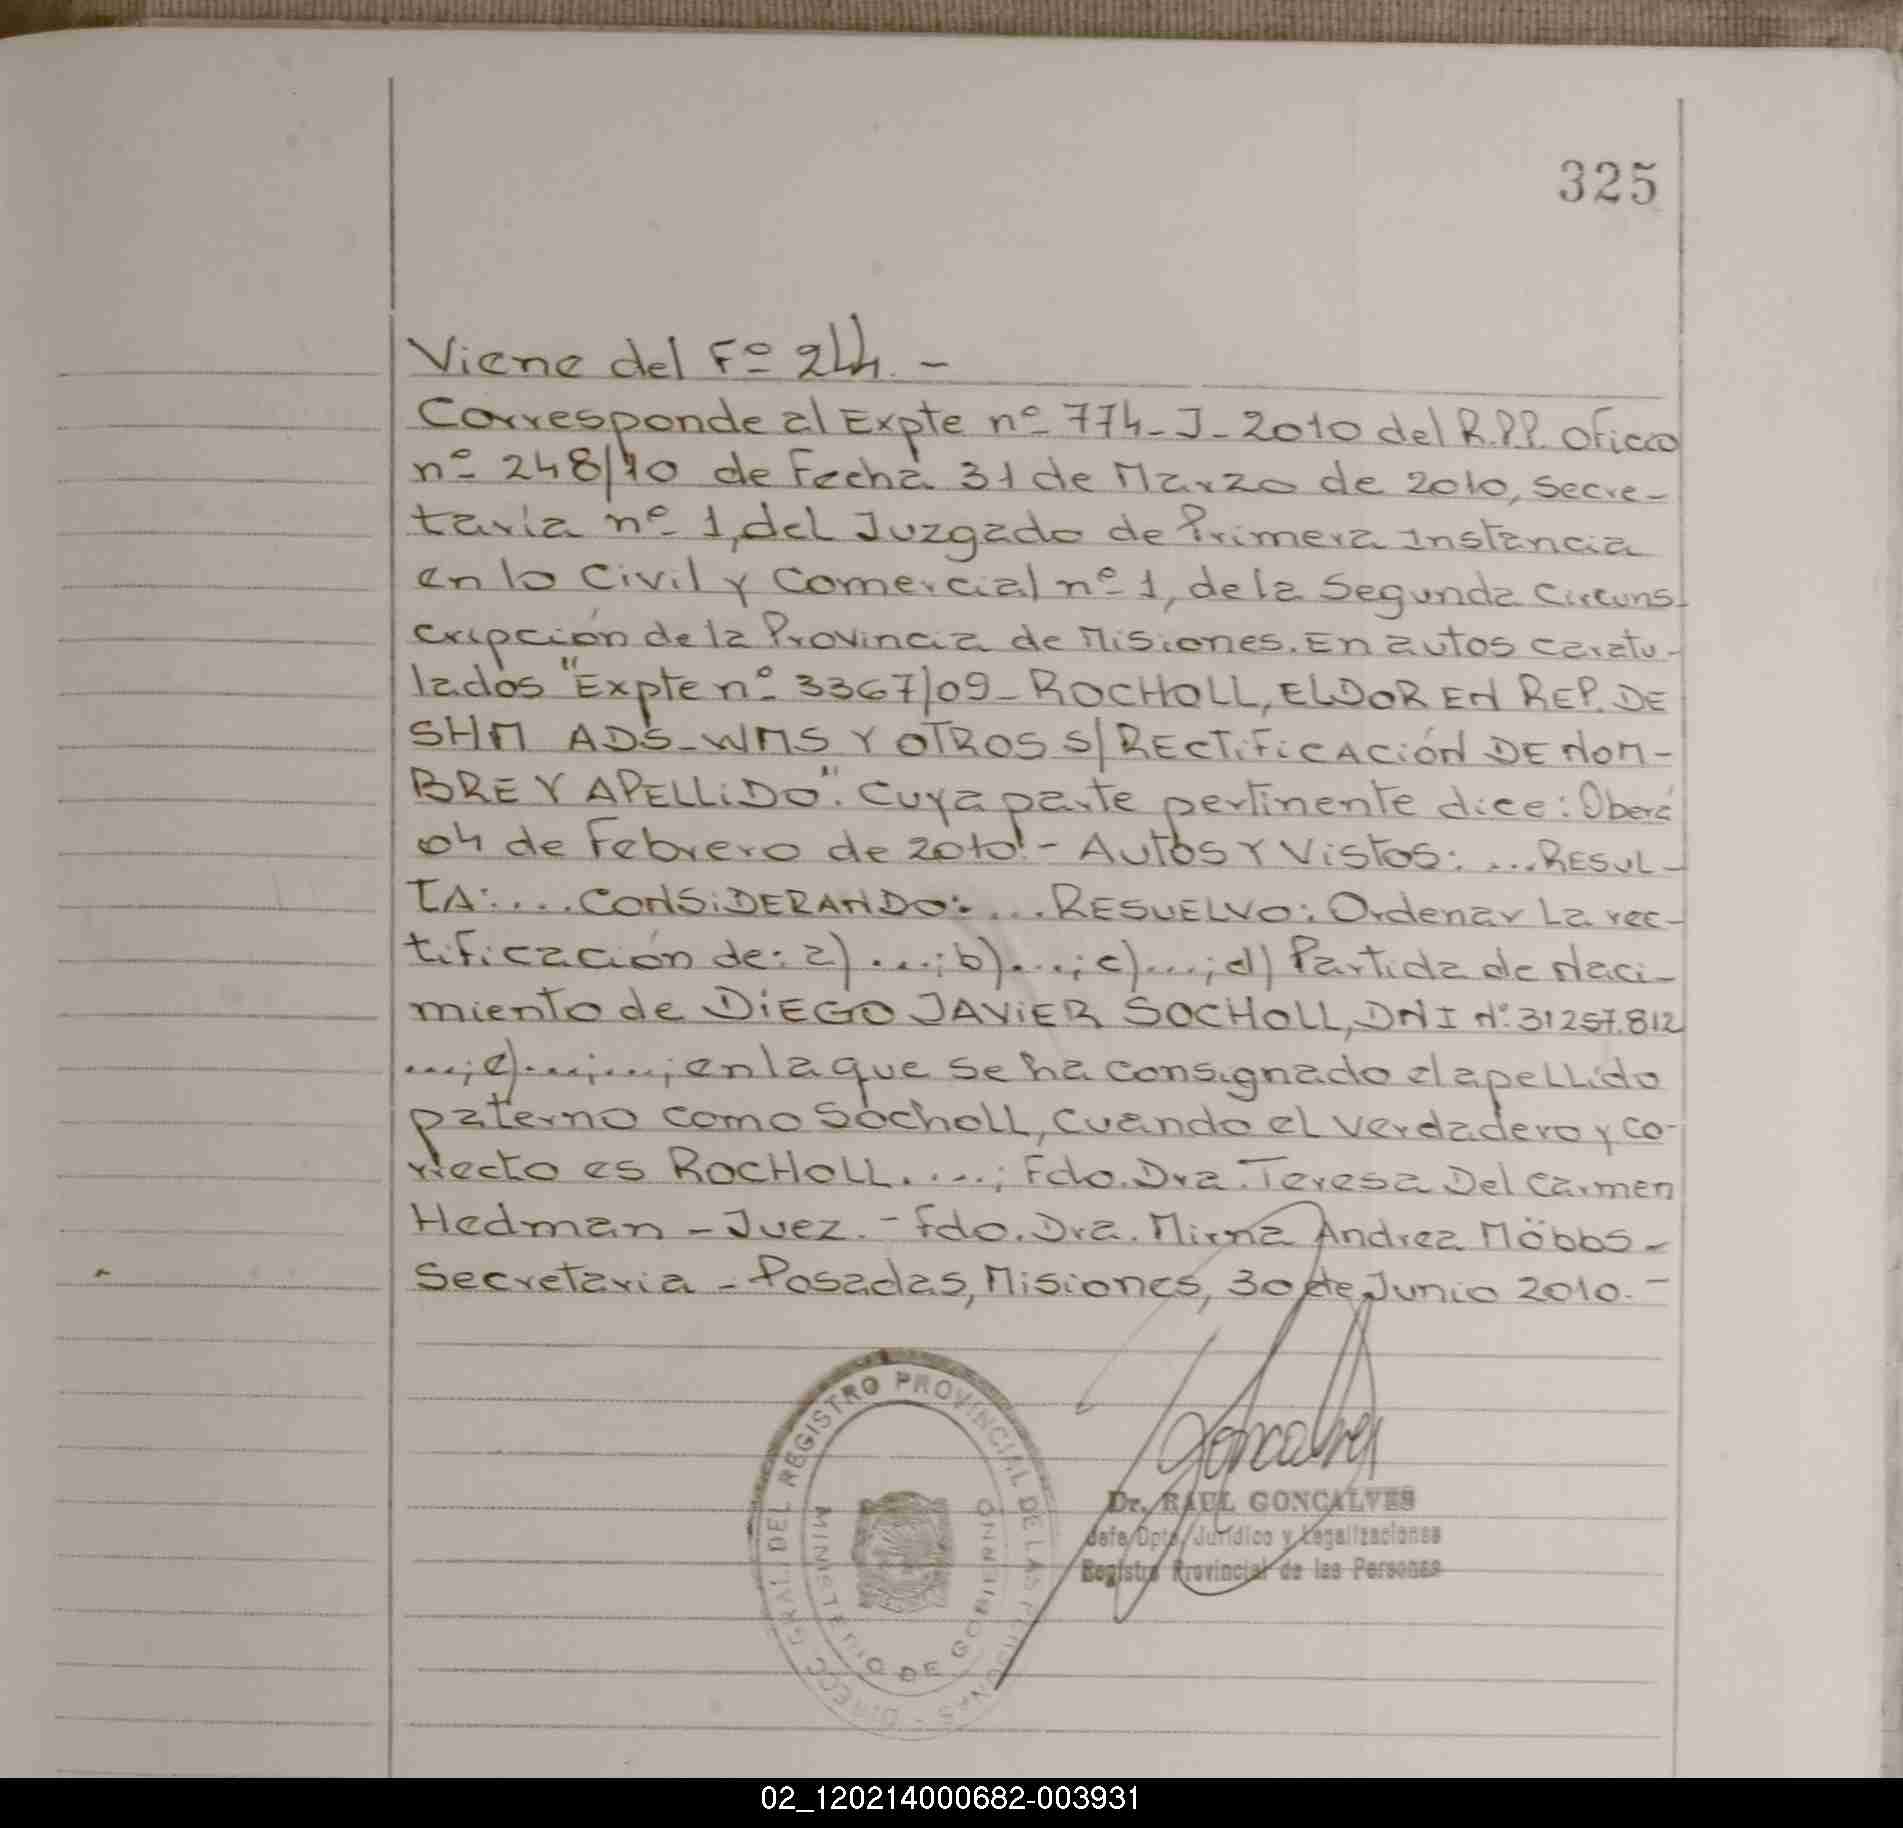 325
Viene del Fº 244. -
Corresponde al Expte nº 774-J-2010 del R.P.P. oficio
nº 248/10 de Fecha 31 de Marzo de 2010, secre-
taria nº 1, del Juzgado de Primera Instancia
en lo Civil y Comercial nº 1, de la Segunda Circuns-
cripción de la Provincia de Misiones. En autos caratu-
lados "Expte nº 3367/09- ROCHOLL, ELDOR EN REP. DE
SHM ADS-WMS Y OTROS S/RECTIFICACIÓN DE NOM-
BRE Y APELLIDO". Cuya parte pertinente dice: Oberá
04 de Febrero de 2010!- AUTOS Y VISTOS: ...RESUL-
TA:.... CONSIDERANDO:... RESUELVO: Ordenar La rec-
tificación de: a) ...; b)...; c)...; d) Partida de Naci-
miento de DIEGO JAVIER SOCHOLL, DNI Nº. 31257.812
...; e)...;...; en la que se ha consignado el apellido
paterno como Socholl, cuando el verdadero y co-
rrecto es ROCHOLL....; Fdo. Dra. Teresa Del Carmen
Hedman - Juez. - Fdo. Dra. Mirna Andrea Möbbs-
Secretaria - Posadas, Misiones, 30 de Junio 2010. -
DIRECC. GRAL. DEL REGISTRO PROVINCIAL DE LAS PERSONAS -
MINISTERIO DE GOBIERNO
Goncalves
Dr. RAUL GONCALVES
Jefe Dpto. Jurídico y Legalizaciones
Registro Provincial de las Personas
02_120214000682-003931